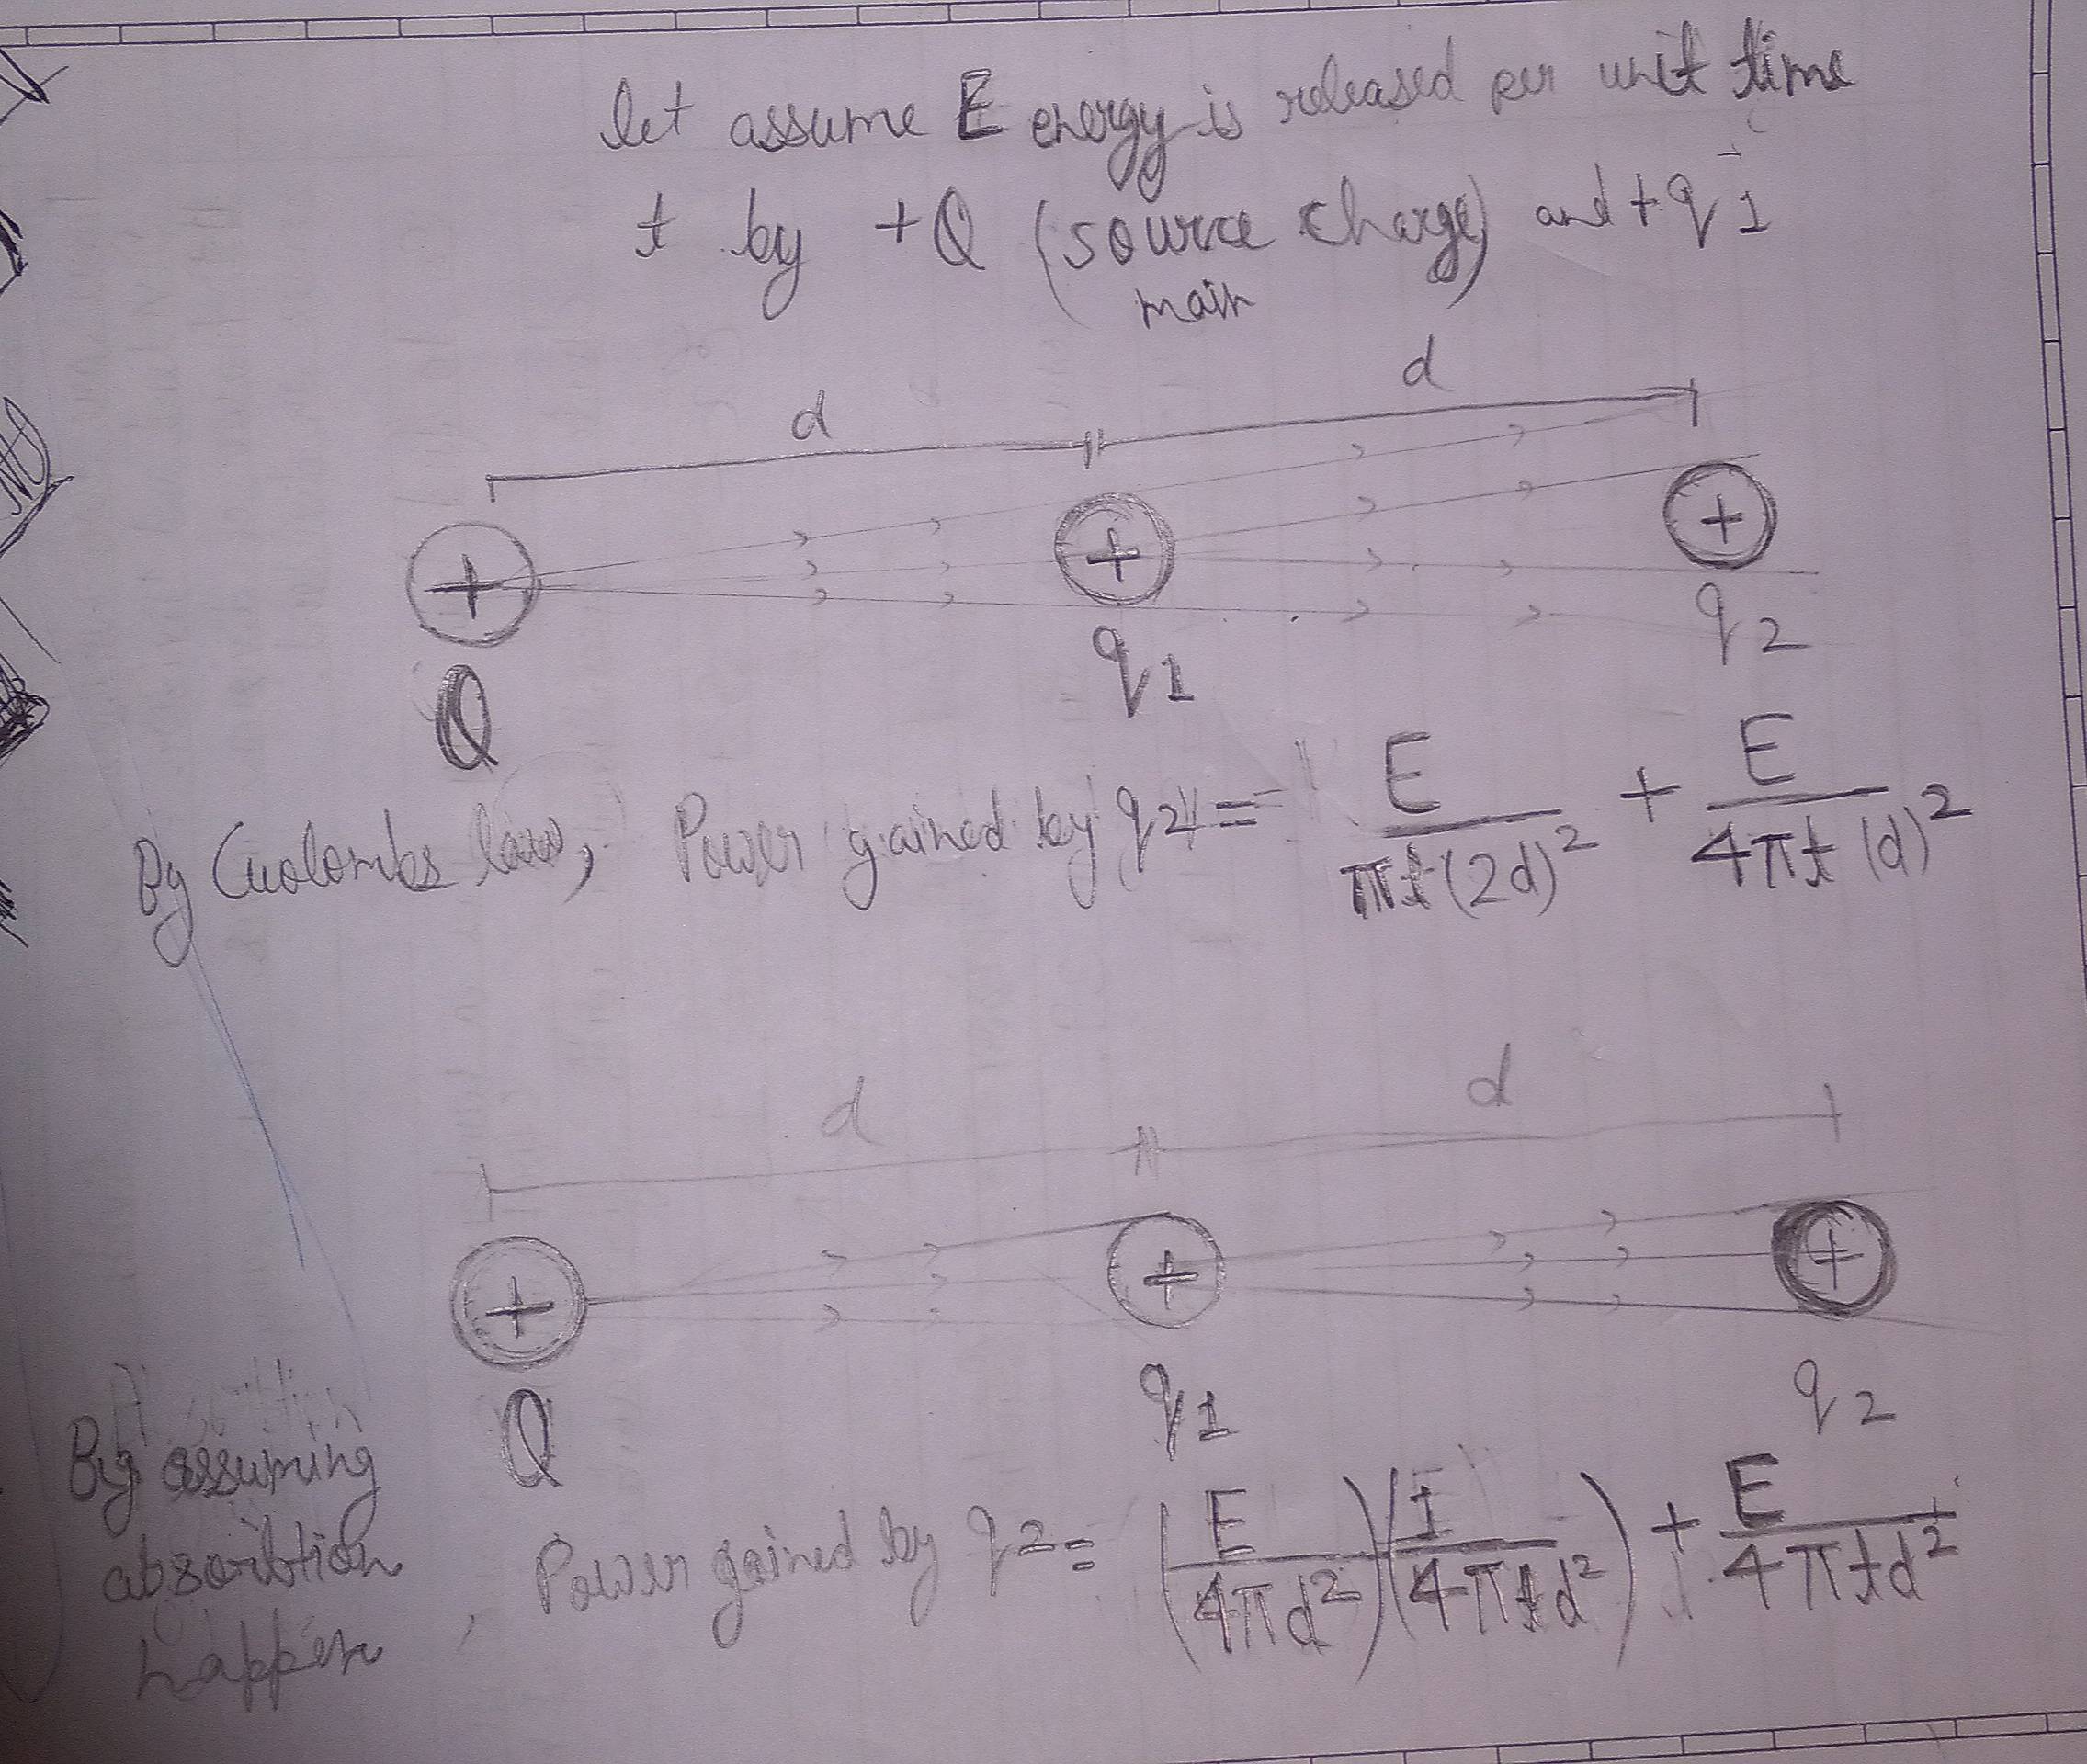 let assume E energy is released per unit time
t by +Q (source charge) and +q1
main
d
d
+
+
+
Q
q1
q2
By Cuolombs law, Power gained by q2 = E/πt(2d)² + E/4πt(d)²
d
d
+
+
+
Q
q1
q2
By assuming
absorbtion
happen, Power gained by q2 = (E/4πd²)(1/4πtd²) + E/4πtd²